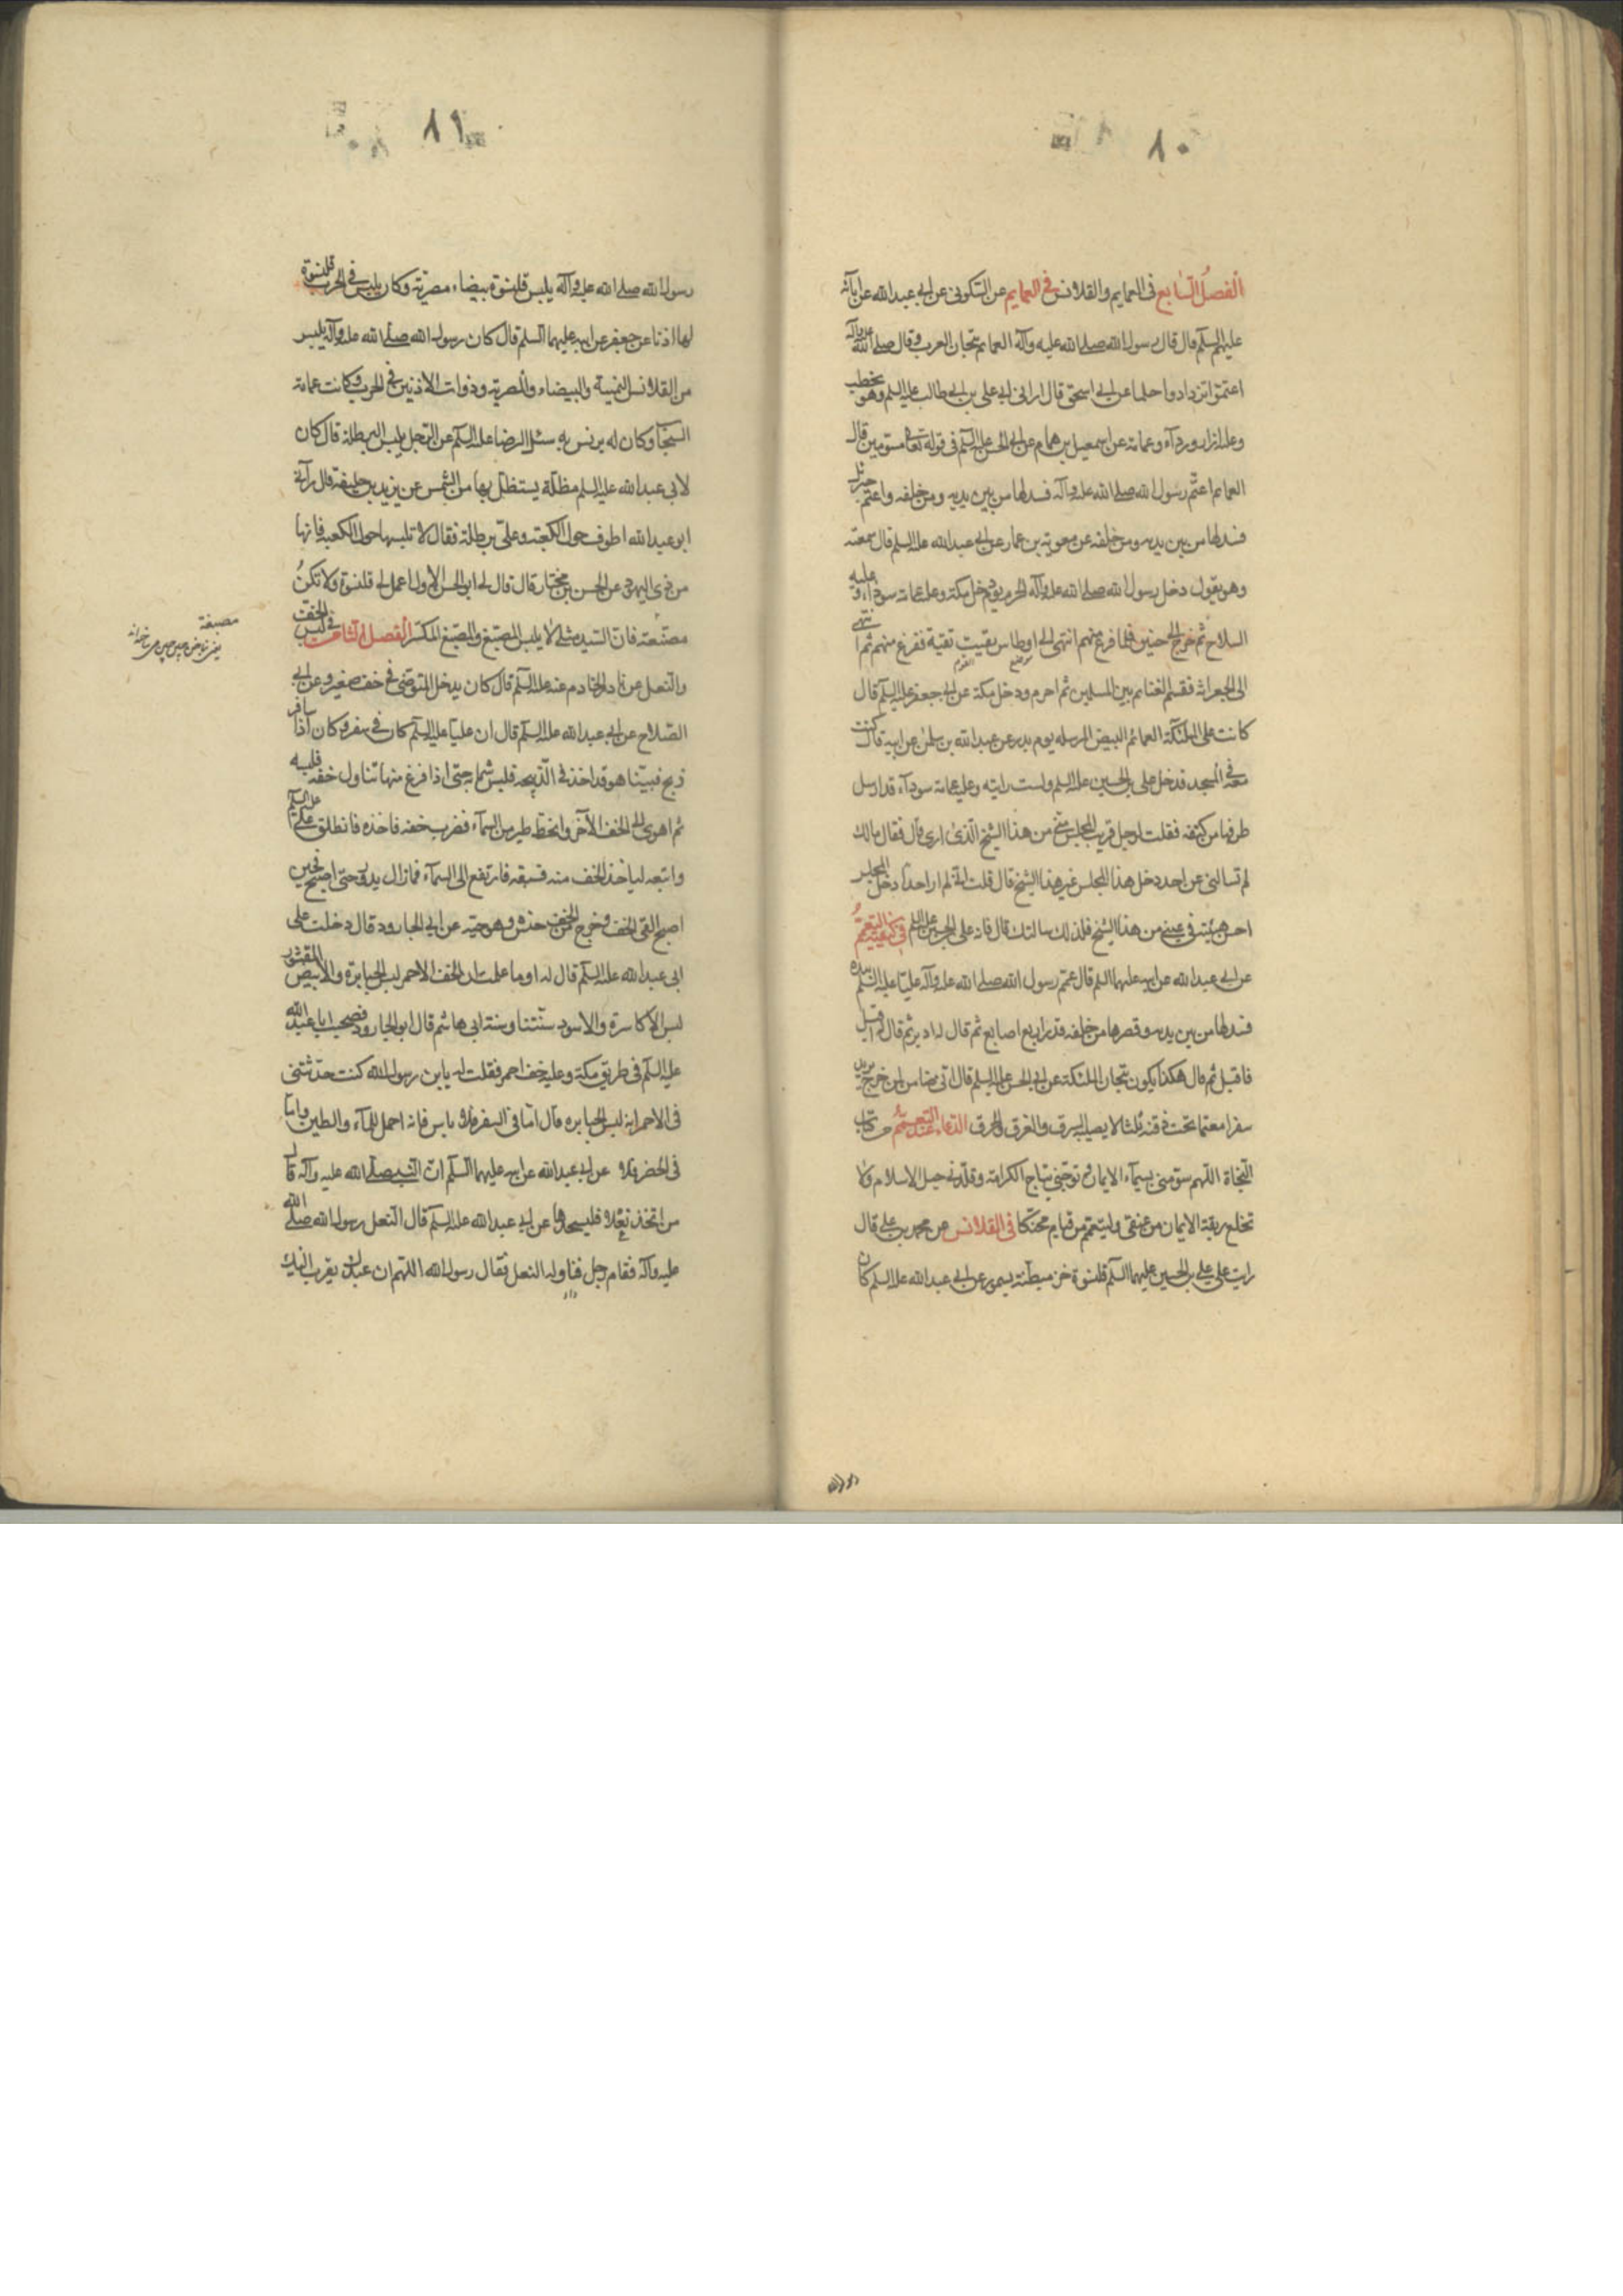 ٨٠
الفصل السابع في العمايم والقلانس في العمايم عن السكوني عن ابي عبدالله عن آبائه
عليهم السلم قال قال رسول الله صلى الله عليه وآله العمايم تيجان العرب وقال صلى الله عليه وآله
اعتموا تزدادوا حلما عن ابي اسحق قال اراني ابي علي بن ابي طالب عليه السلم وهو يخطب
وعليه ازار ورداء وعمامة عن اسمعيل بن همام عن ابي الحسن عليه السلم في قوله تعالى مسومين قال
العمايم اعتم رسول الله صلى الله عليه وآله فسدلها من بين يديه ومن خلفه واعتم جبرئيل
فسدلها من بين يديه ومن خلفه عن معوية بن عمار عن ابي عبدالله عليه السلم قال سمعته
وهو يقول دخل رسول الله صلى الله عليه وآله الحرم يوم دخل مكة وعليه عمامة سوداء وعليه
السلاح ثم خرج الى حنين فلما فرغ منهم انتهى الى اوطاس بقيت بقية ففرغ منهم ثم انتهى
الى الجعرانة فقسم الغنايم بين المسلمين ثم احرم ودخل مكة عن ابي جعفر عليه السلم قال
كانت على الملئكة العمائم البيض المرسلة يوم بدر عن عبدالله بن سلمن عن ابيه قال كنت
معه في المسجد فدخل علي بن الحسين عليه السلم ولست رايته وعليه عمامة سوداء قد ارسل
طرفها من كتفه فقلت لرجل قريب المجلس مني من هذا الشيخ الذي ارى قال فقال مالك
لم تسالني عن احد دخل هذا المجلس غير هذا الشيخ قال قلت له لم ار احدا دخل المجلس
احسن هيئة في عيني من هذا الشيخ فلذلك سالتك قال فانه علي بن الحسين عليه السلم في كيفية التعمم
عن ابي عبدالله عن ابيه عليهما السلم قال عمم رسول الله صلى الله عليه وآله عليا عليه السلم بيده
فسدلها من بين يديه وقصرها من خلفه قدر اربع اصابع ثم قال له ادبر ثم قال اقبل
فاقبل ثم قال هكذا يكون تيجان الملئكة عن ابي الحسن عليه السلم قال اني ضامن لمن خرج يريد
سفرا معتما تحت ذقنه ثلثا لا يصيبه السرق والغرق والحرق الدعاء عند التعمم من كتاب
النجاة اللهم سومني بسيماء الايمان وتوجني بتاج الكرامة وقلدني حبل الاسلام ولا
تخلع ربقة الايمان من عنقي وليتعمم من قيام محنكا في القلانس عن محمد بن علي قال
رايت على علي بن الحسين عليهما السلم قلنسوة خز مبطنة بسمور عن ابي عبدالله عليه السلم كان
رسول الله
٨١
رسول الله صلى الله عليه وآله يلبس قلنسوة بيضاء مصرية وكان يلبس في الحرب قلنسوة
لها اذنا عن جعفر عن ابيه عليهما السلم قال كان رسول الله صلى الله عليه وآله يلبس
من القلانس اليمنية والبيضاء والمصرية وذوات الاذنين في الحرب وكانت عمامته
السحاب وكان له برنس به سئل الرضا عليه السلم عن الرجل يلبس البرطلة قال كان
لابي عبدالله عليه السلم مظلة يستظل بها من الشمس عن يزيد بن خليفة قال رآني
ابو عبدالله اطوف حول الكعبة وعلي برطلة فقال لا تلبسها حول الكعبة فانها
من زي اليهود عن الحسن بن مختار قال قال لي ابو الحسن الاول اعمل لي قلنسوة ولا تكن
مصنعة فان السيد مثلي لا يلبس المصبغ والمصبغ المكسر الفصل الثامن في لبس الخف
مصبغة
والنعل عن نادر الخادم عنه عليه السلم قال كان يدخل المتوضى في خف صغير وعن ابي
الصلاح عن ابي عبدالله عليه السلم قال ان عليا عليه السلم كان في سفر وكان اذا سافر
ذبح فبينا هو قد اخذ في الذبيحة فلبس شماله حتى اذا فرغ منها تناول خفه فلبسه
ثم اهوى الى الخف الآخر وانحط طير من السماء فضرب خفه فاخذه فانطلق علي عليه السلم
واتبعه لياخذ الخف منه فسبقه فارتفع الى السماء فما زال يدور حتى اصبح فحين
اصبح القى الخف وخرج من الخف حنش وهو حية عن ابي الجارود قال دخلت على
ابي عبدالله عليه السلم قال له اوما علمت ان الخف الاحمر لبس الجبابرة والابيض المقشور
لبس الاكاسرة والاسود سنتنا وسنة ابي هاشم قال ابو الجارود فصحبت ابا عبدالله
عليه السلم في طريق مكة وعليه خف احمر فقلت له يابن رسول الله كنت حدثتني
في الاحمر انه لبس الجبابره قال اما في السفر فلا باس فانه احمل للماء والطين واما
في الحضر فلا عن ابي عبدالله عن ابيه عليهما السلم ان النبي صلى الله عليه وآله قال
من اتخذ نعلا فليستجدها عن ابي عبدالله عليه السلم قال النعل رسول الله صلى الله
عليه وآله فقام رجل فناوله النعل فقال رسول الله اللهم ان عبدك تقرب اليك